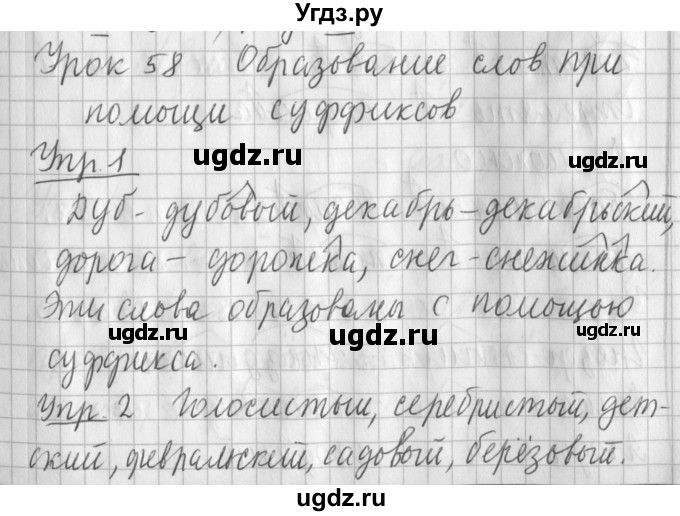 Угдз.ру
Урок 58 Образование слов при
помощи суффиксов
Упр. 1
ugdz.ru
ugdz.ru
Дуб - дубовый, декабрь - декабрьский,
дорога - дорожка, снег - снежинка.
Эти слова образованы с помощью
ugdz.ru
ugdz.ru
ugdz.ru
суффикса.
Упр. 2 Голосистый, серебристый, дет-
ский, февральский, садовый, берёзовый.
ugdz.ru